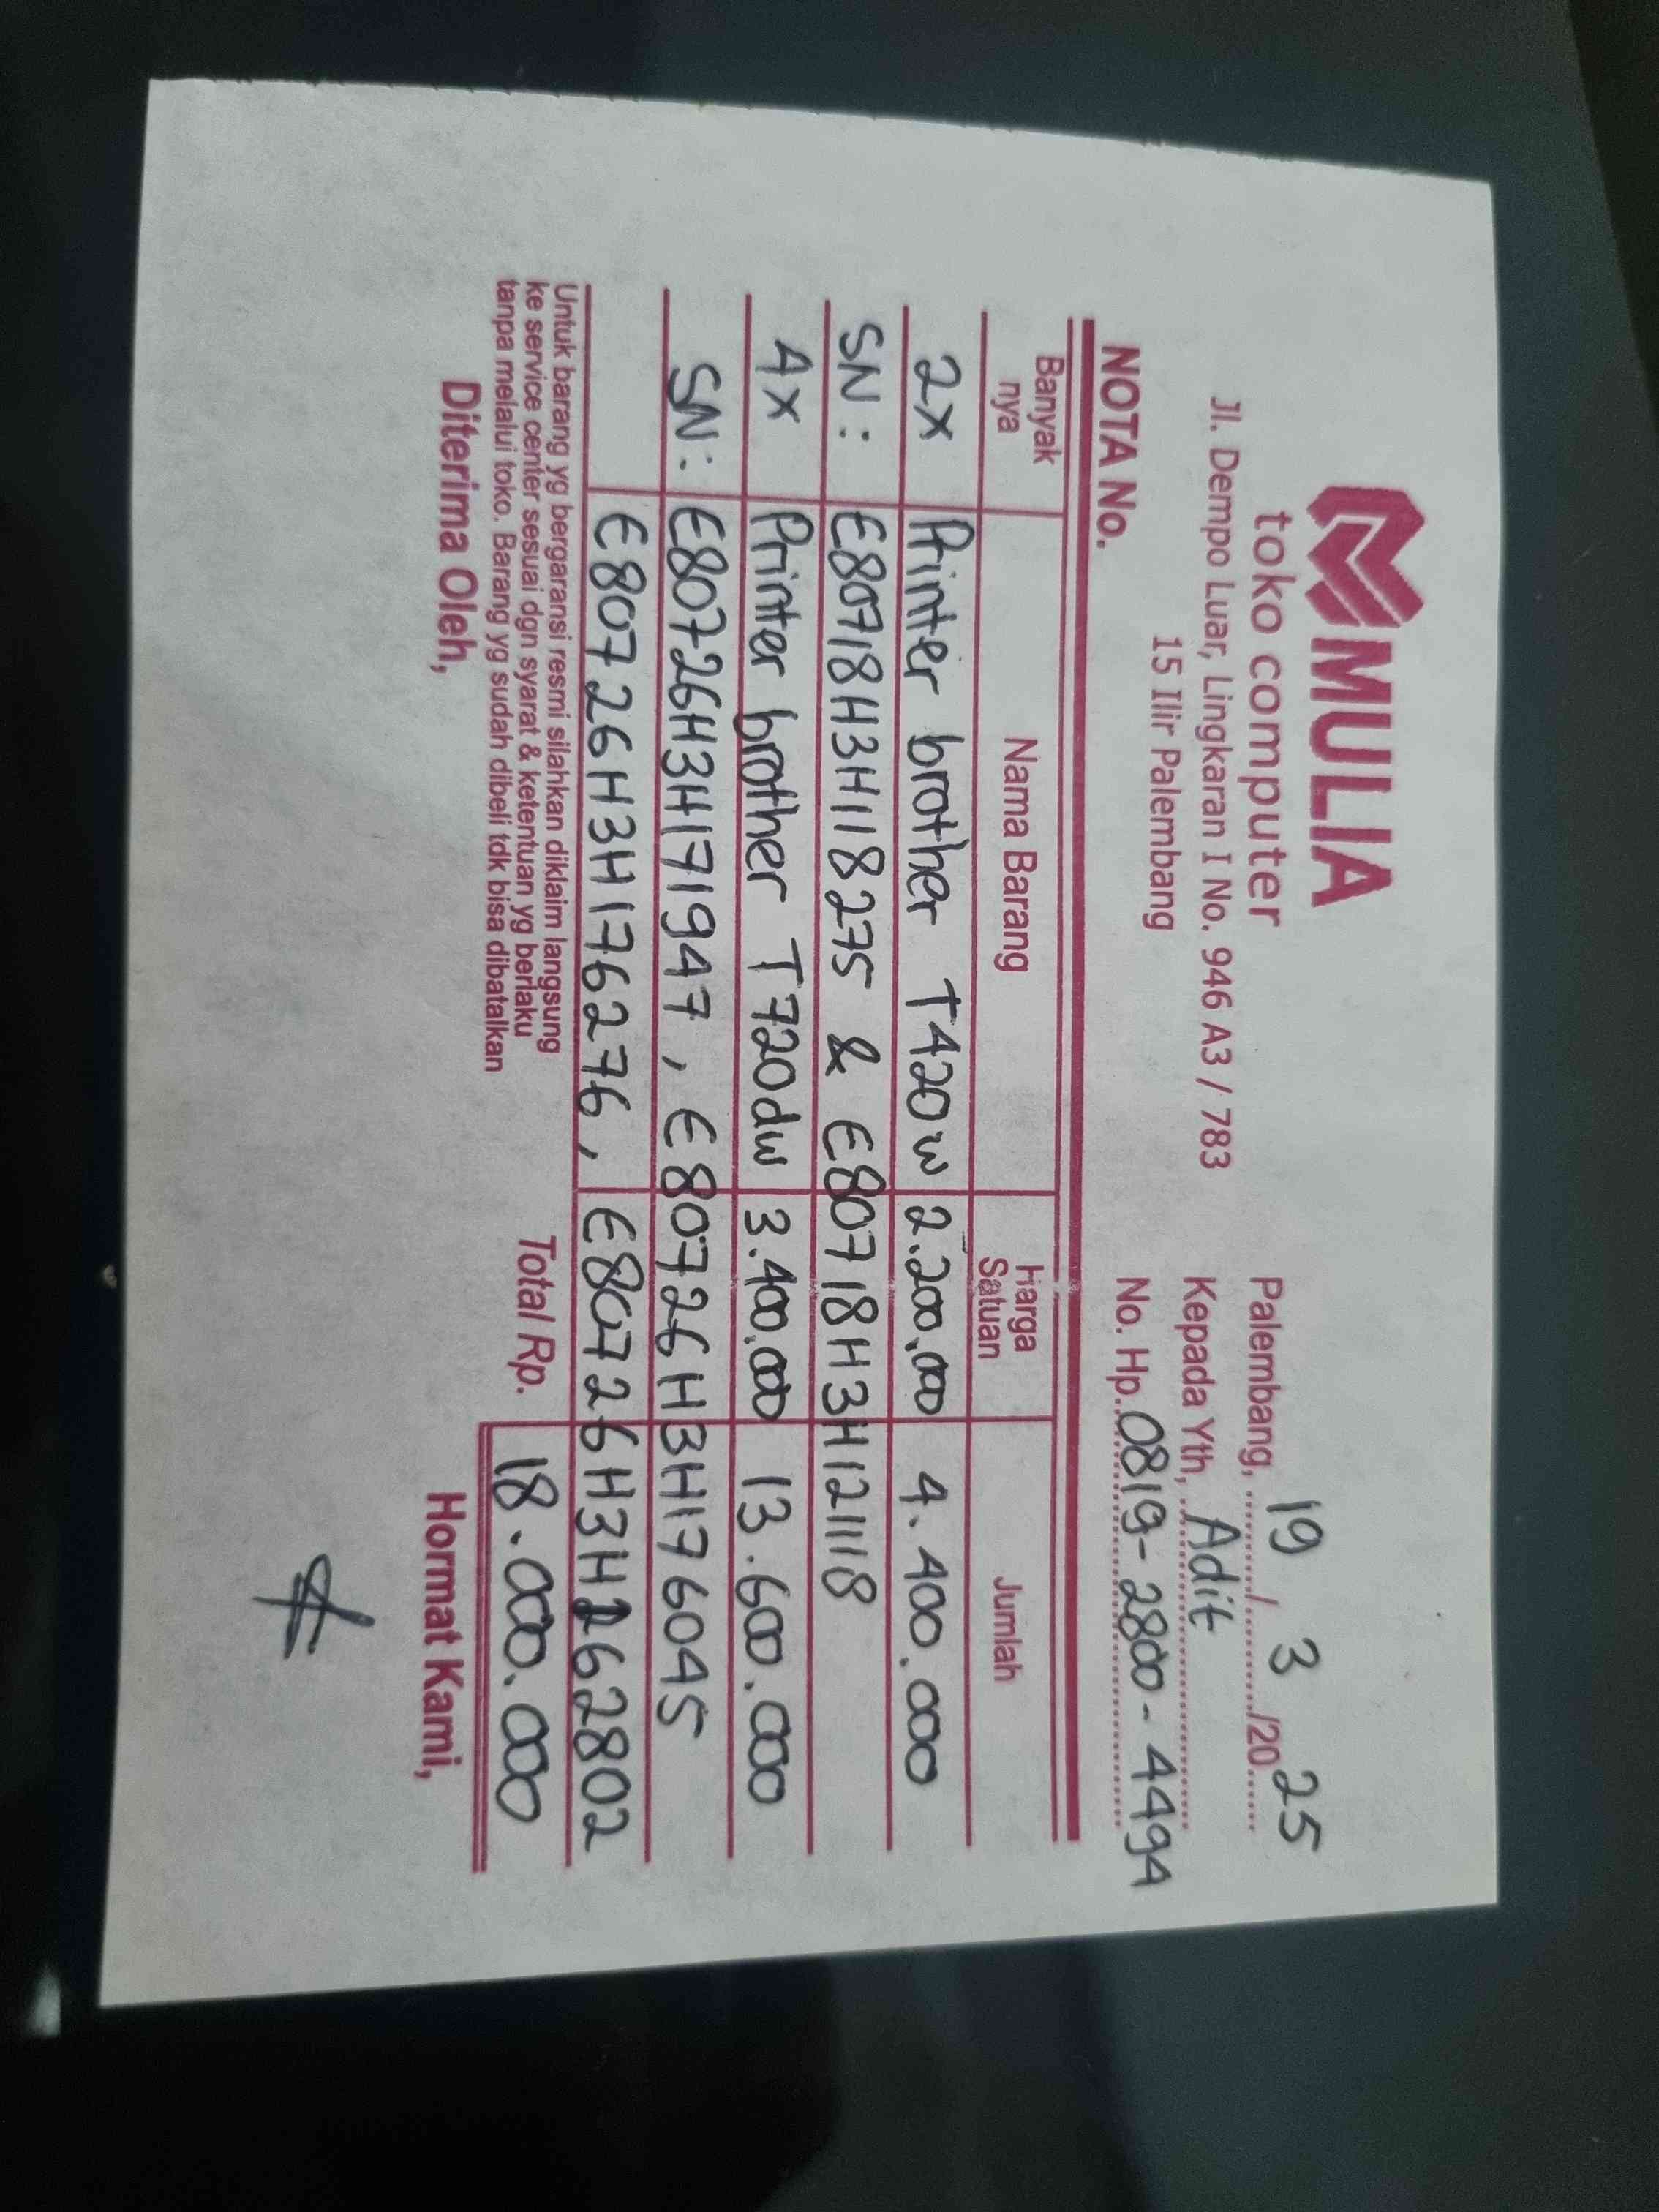 MULIA
toko computer
Jl. Dempo Luar, Lingkaran I No. 946 A3 / 783
15 Ilir Palembang
Palembang, 19 / 3 /2025
Kepada Yth, Adit
No. Hp. 0819-2800-4494
NOTA No.
Banyak nya Nama Barang Harga Satuan Jumlah
2x Printer brother T420w 2.200.000 4.400.000
SN: E80718H3H118275 & E80718H3H121118
4x Printer brother T720dw 3.400.000 13.600.000
SN: E80726H3H171947, E80726H3H176045
E80726H3H176276, E80726H3H162802
Untuk barang yg bergaransi resmi silahkan diklaim langsung
ke service center sesuai dgn syarat & ketentuan yg berlaku
tanpa melalui toko. Barang yg sudah dibeli tdk bisa dibatalkan
Total Rp. 18.000.000
Diterima Oleh, Hormat Kami,